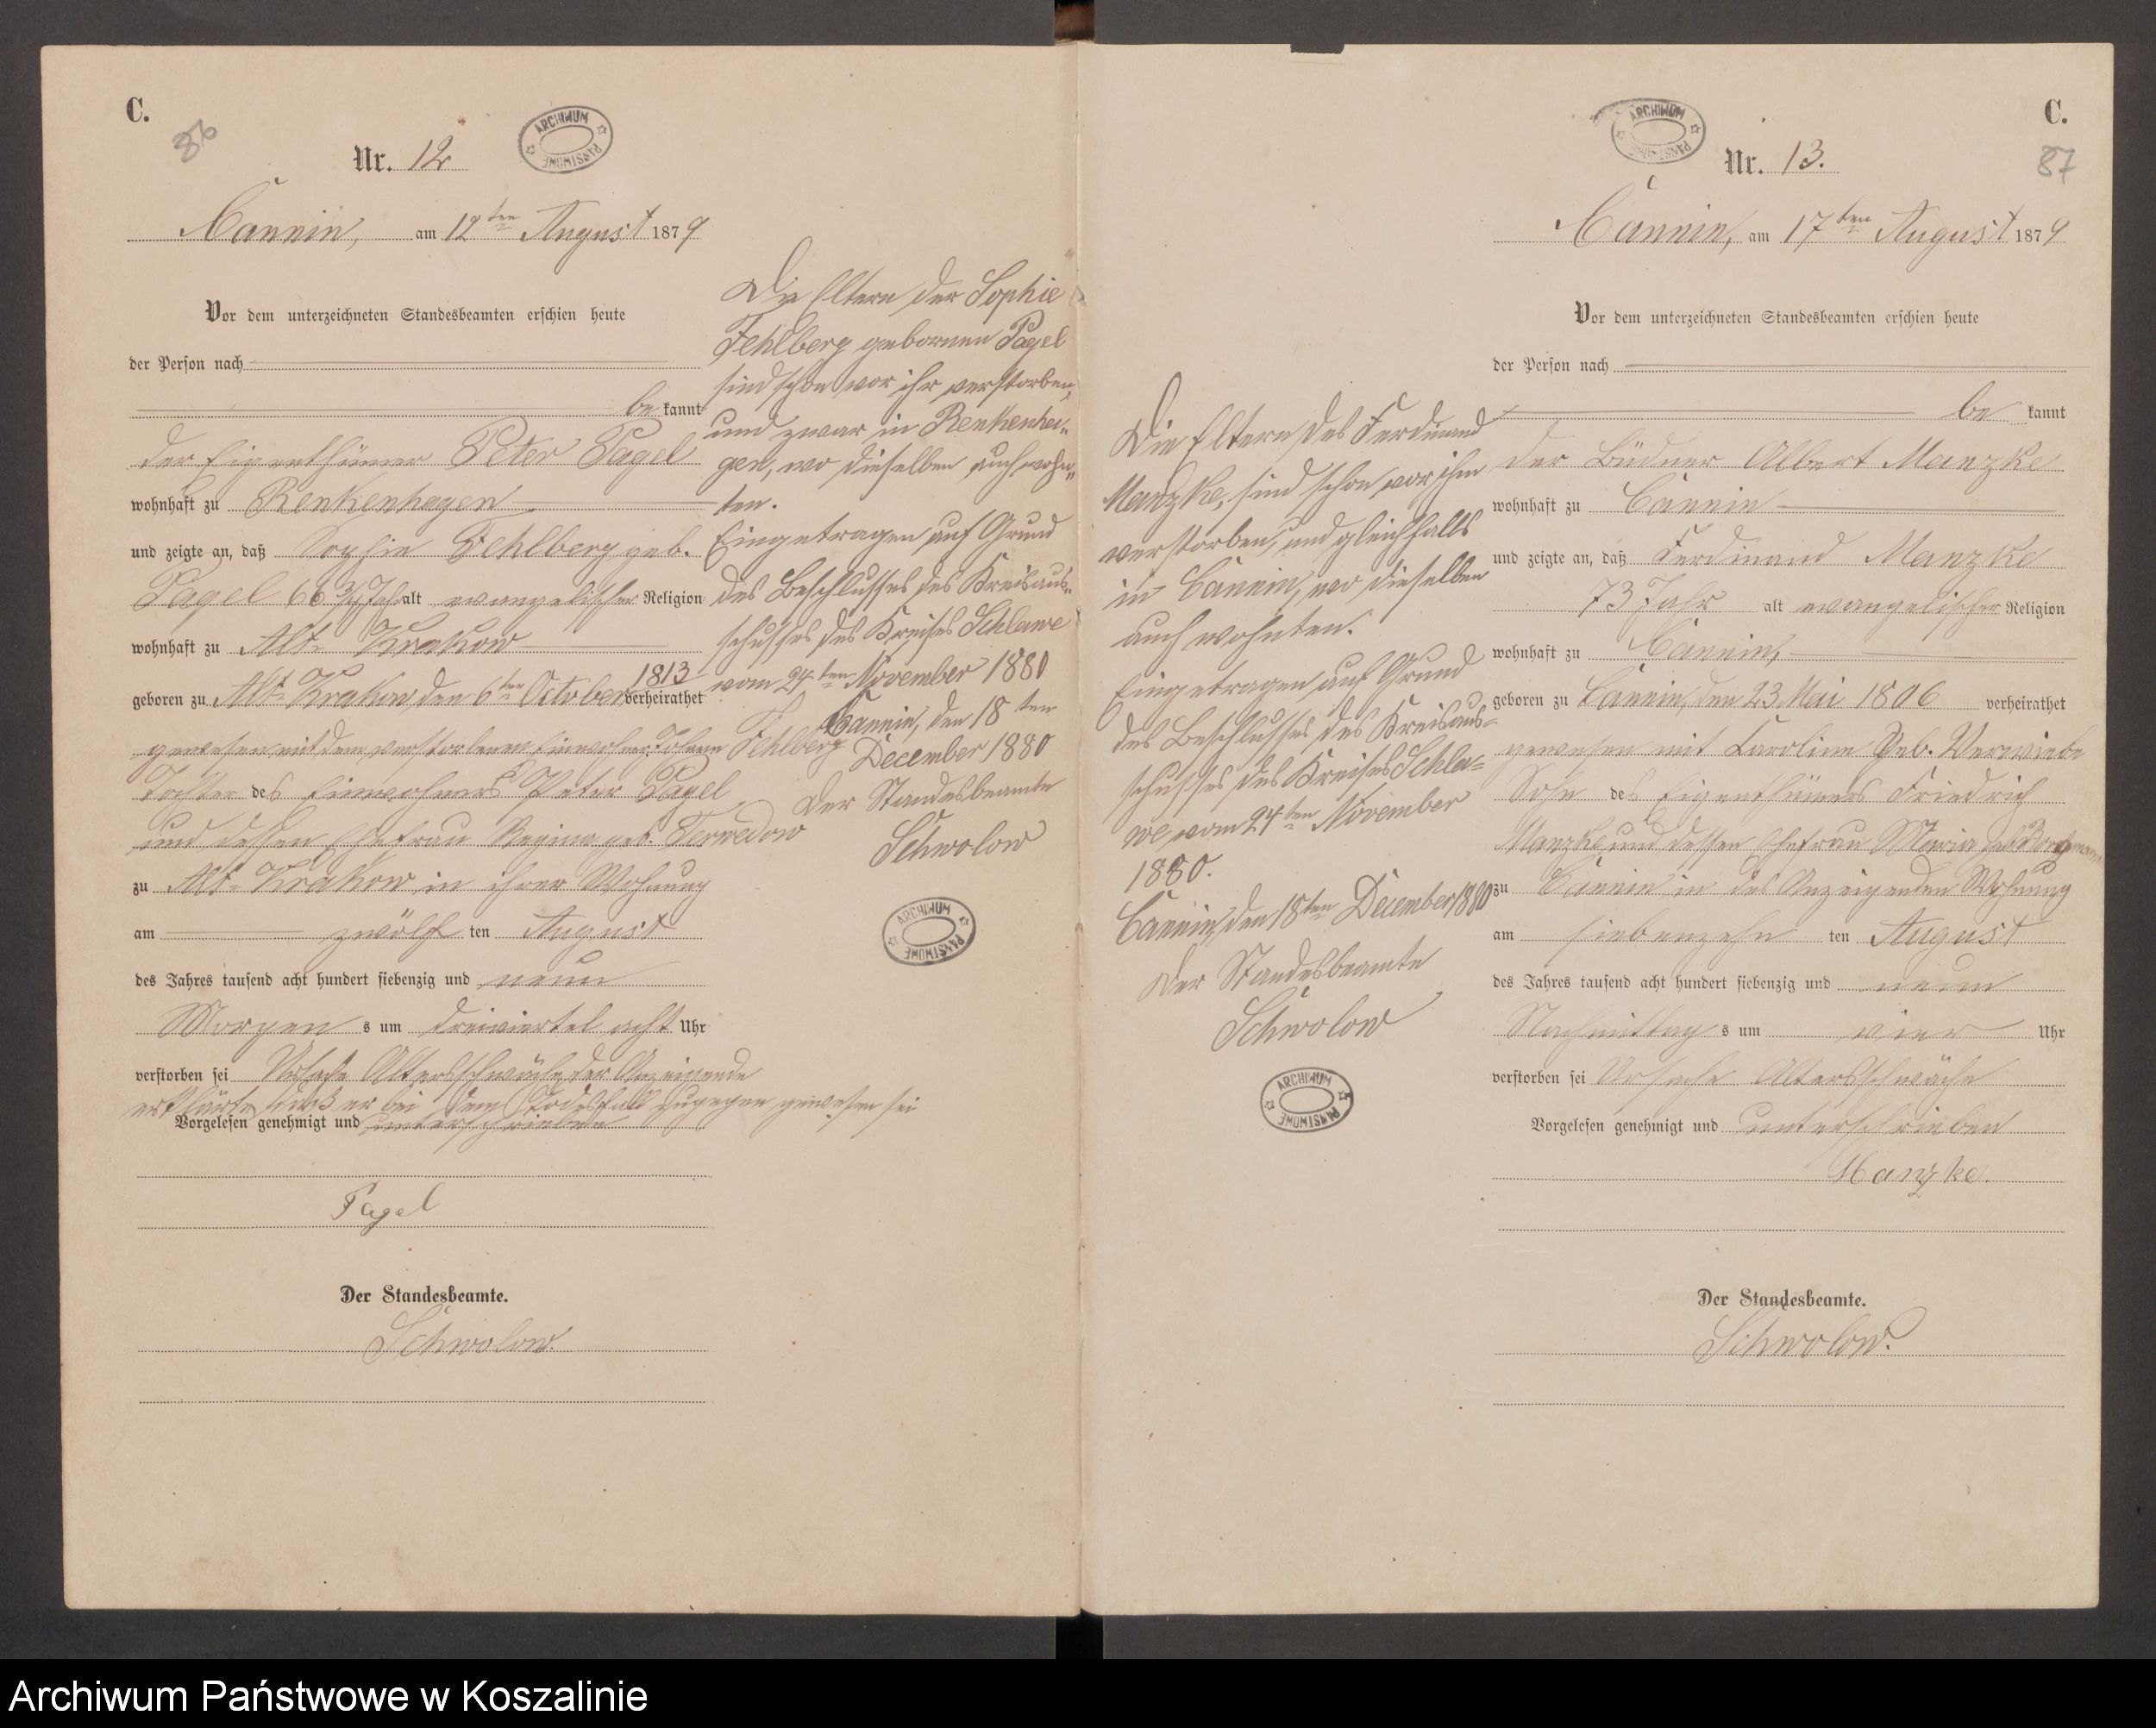 C.
86
Nr. 12
ARCHIWUM PAŃSTWOWE
Cannin, am 12ten August 1879
Vor dem unterzeichneten Standesbeamten erschien heute
der Person nach
be kannt
der Eigenthümer Peter Pagel
wohnhaft zu Renkenhagen
und zeigte an, daß Sophie Fehlberg geb.
Pagel 66 3/4 Jahr alt evangelischer Religion
wohnhaft zu Alt-Krakow
geboren zu Alt-Krakow, den 6ten October 1813 verheirathet
gewesen mit dem verstorbenen Einwohner Johann Fehlberg
Tochter des Einwohners Peter Pagel
und dessen Ehefrau Regina geb. Ternedow
zu Alt-Krakow, in ihrer Wohnung
am zwölf ten August
des Jahres tausend acht hundert siebenzig und neun
Morgen s um dreiviertel acht Uhr
verstorben sei Ursache Altersschwäche, der Anzeigende
erklärte, daß er bei dem Todesfall zugegen gewesen sei
Vorgelesen genehmigt und unterschrieben
Pagel
Der Standesbeamte.
Schwolow.
Die Eltern der Sophie
Fehlberg gebornen Pagel
sind schon vor ihr verstorben,
und zwar in Renkenha-
gen, wo dieselben auch wohn-
ten.
Eingetragen auf Grund
des Beschlusses des Kreisaus-
schusses des Kreises Schlawe
vom 24ten November 1880
Cannin, den 18ten
December 1880
Der Standesbeamte
Schwolow
ARCHIWUM PAŃSTWOWE
C.
87
Nr. 13.
ARCHIWUM PAŃSTWOWE
Cannin, am 17ten August 1879
Vor dem unterzeichneten Standesbeamten erschien heute
der Person nach
be kannt
der Büdner Albert Manzke
wohnhaft zu Cannin
und zeigte an, daß Ferdinand Manzke
73 Jahr alt evangelischer Religion
wohnhaft zu Cannin,
geboren zu Cannin, den 23 Mai 1806 verheirathet
gewesen mit Karoline Geb. Verwiebe
Sohn des Eigenthümers Friedrich
Manzke und dessen Ehefrau Maria geb.
zu Cannin in des Anzeigenden Wohnung
am siebenzehn ten August
des Jahres tausend acht hundert siebenzig und neun
Nachmittag s um vier Uhr
verstorben sei Ursache Altersschwäche
Vorgelesen genehmigt und unterschrieben
Manzke.
Der Standesbeamte.
Schwolow.
Die Eltern des Ferdinand
Manzke, sind schon vor ihm
verstorben, und gleichfalls
in Cannin, wo dieselben
auch wohnten.
Eingetragen auf Grund
des Beschlusses des Kreisaus-
schusses des Kreises Schla-
we vom 24ten November
1880.
Cannin, den 18ten December 1880
Der Standesbeamte
Schwolow
ARCHIWUM PAŃSTWOWE
Archiwum Państwowe w Koszalinie